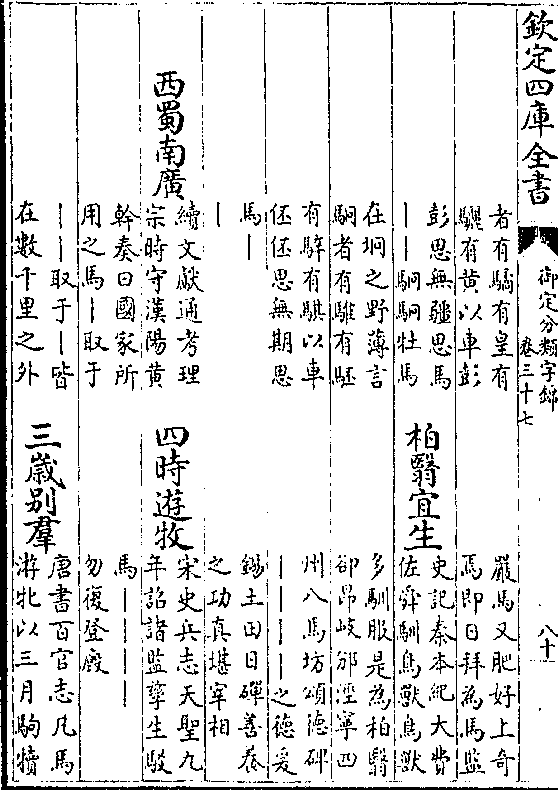 欽定四庫全書
御定分類字錦
卷三十七
八十
者有驕有皇有
驪有黃以車彭
彭思無疆思馬
——駉駉牡馬
在坰之野薄言
駉者有騅有駓
有騂有騏以車
伾伾思無期思
馬—
—
西蜀南廣
續文獻通考理
宗時守漢陽黃
幹奏曰國家所
用之馬—取于
——取于—皆
在數千里之外
嚴馬又肥好上奇
馬即日拜為馬監
柏翳宜生
史記秦本紀大費
佐舜馴鳥獸鳥獸
多馴服是為柏翳
郤昂岐邠涇寧四
州八馬坊頌德碑
————之德爰
錫土田日磾善養
之功真堪宰相
四時遊牧
宋史兵志天聖九
年詔諸監孳生駁
馬————
勿復登廄
三歲別羣
唐書百官志凡馬
游牝以三月駒犢